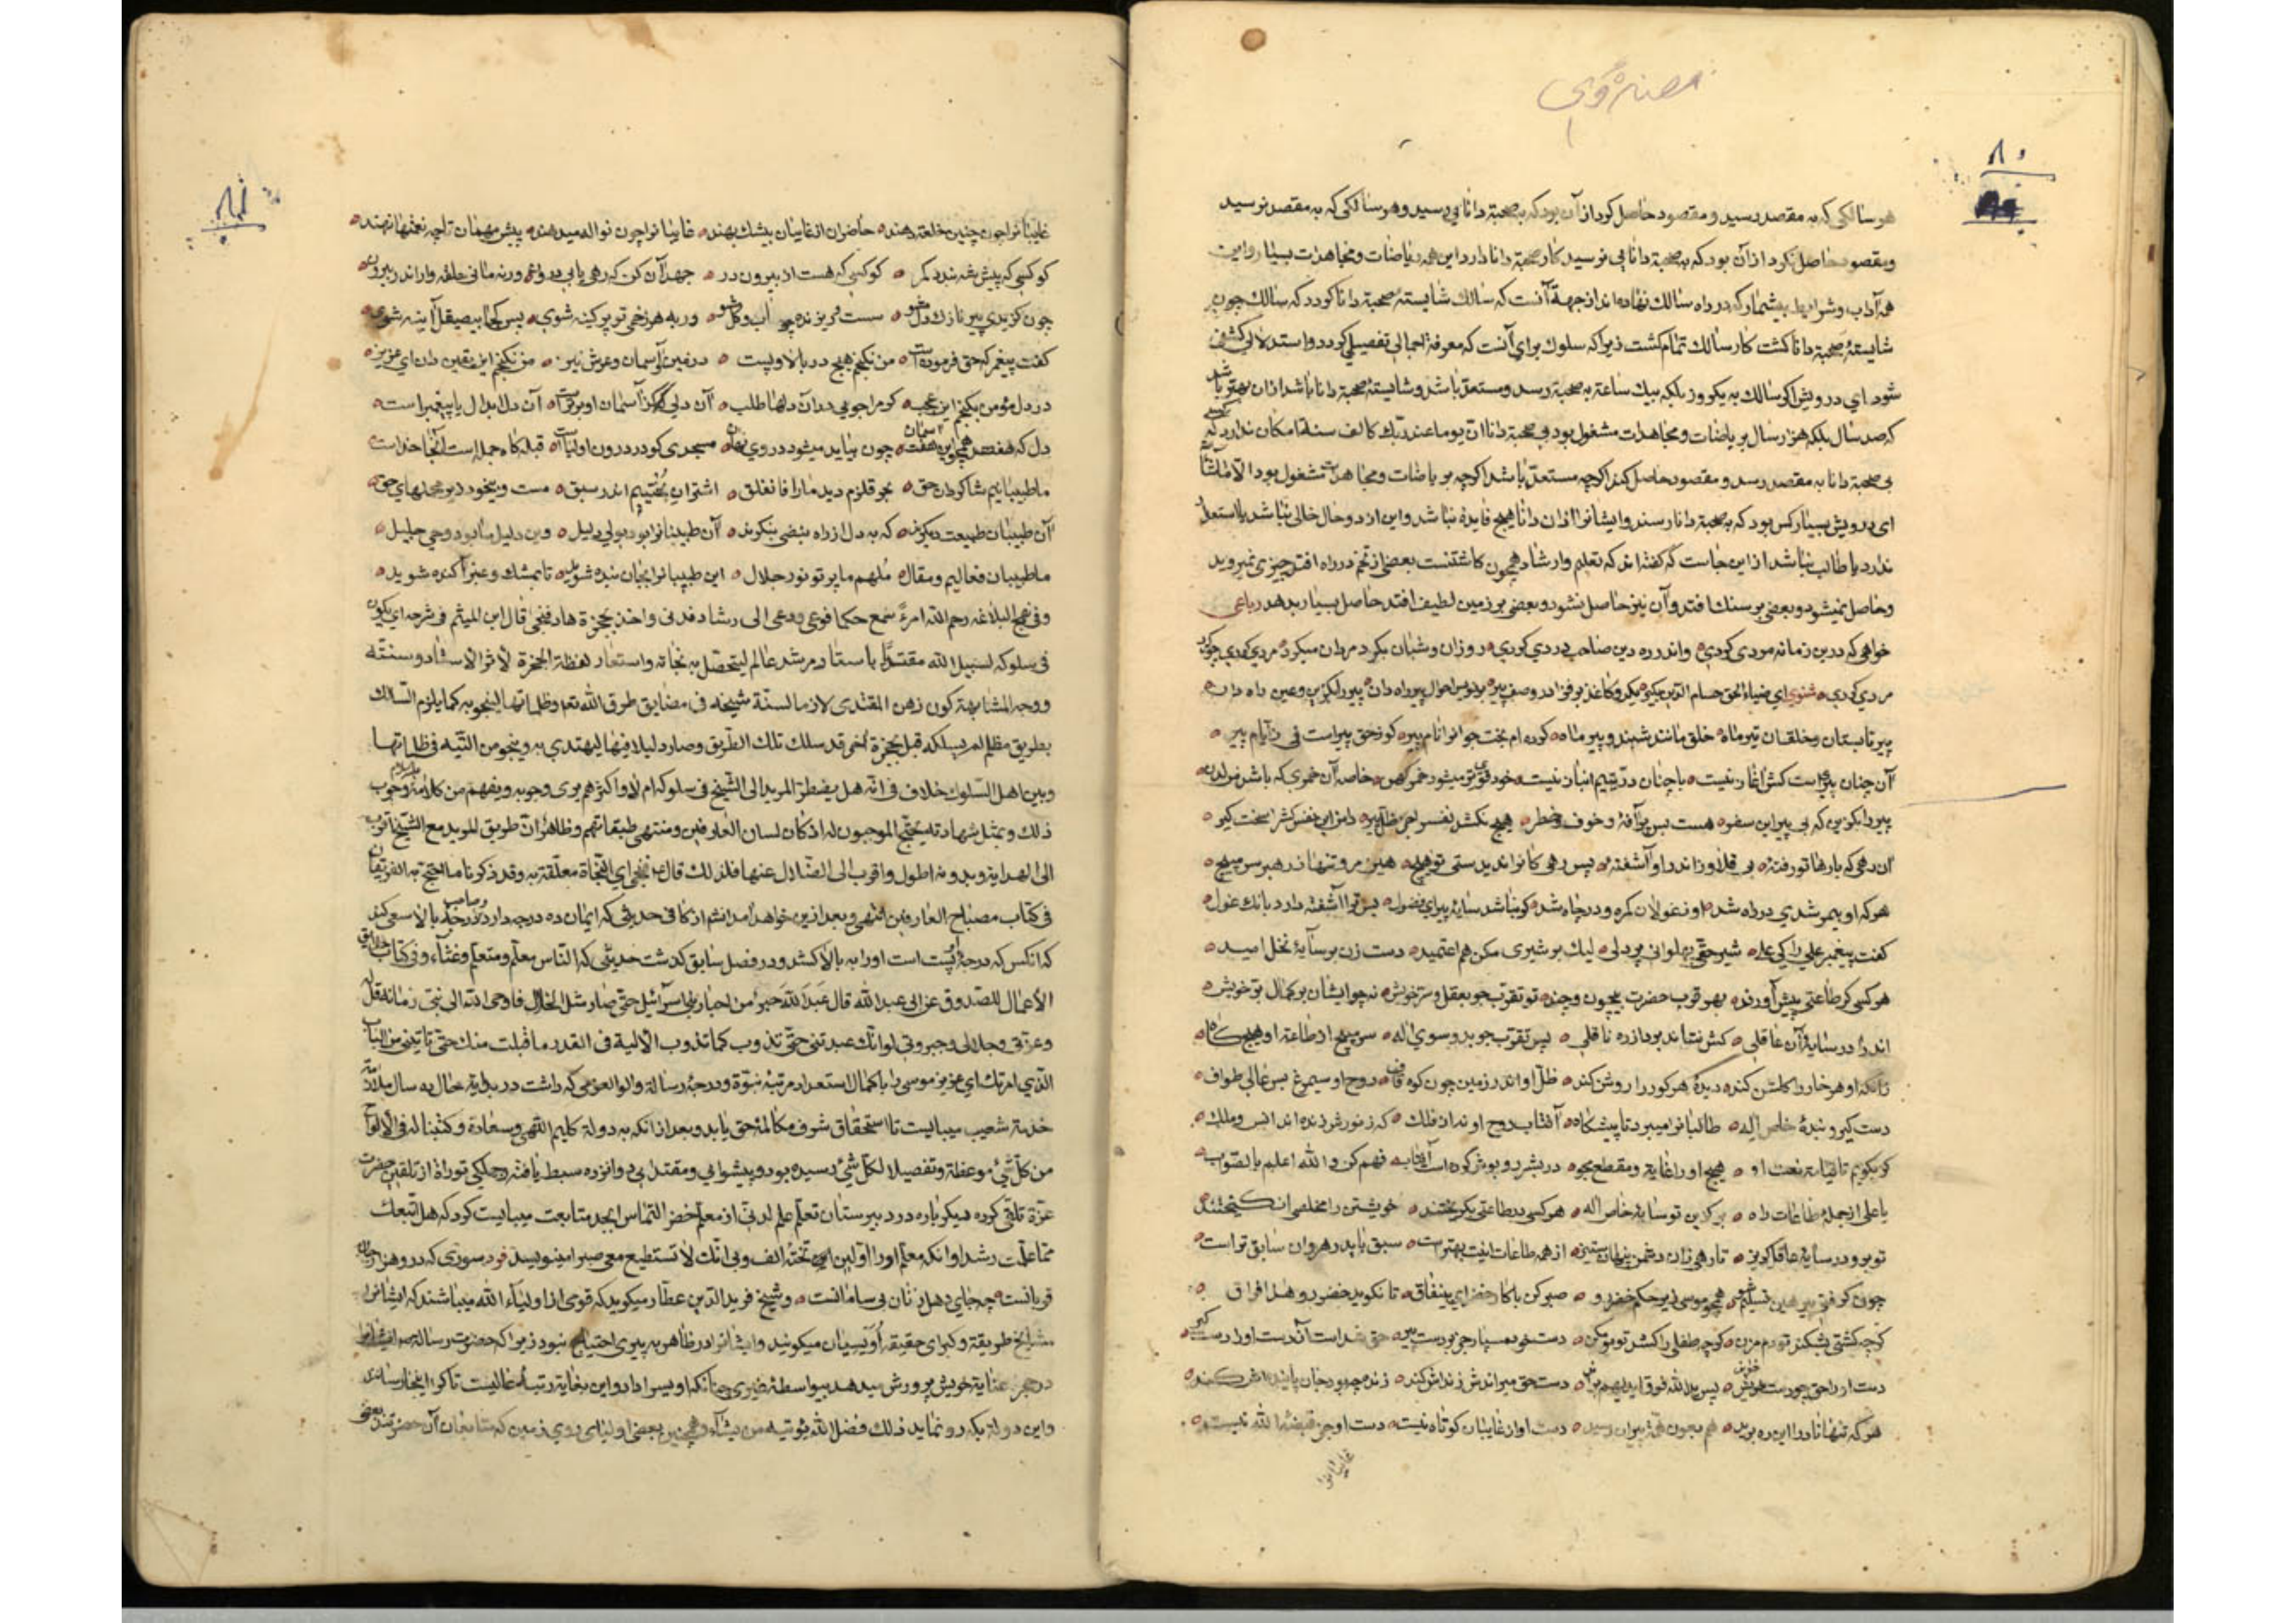 ۸۰
هر سالکی که به مقصد رسید و مقصود حاصل کرد از آن بود که به صحبة دانایی رسید و هر سالکی که به مقصد نرسید
و مقصود حاصل نکرد از آن بود که به صحبة دانایی نرسید کار صحبة دانا دارد این همه ریاضات و مجاهدات بسیار و این
همه آداب و شرایط بیشمار که در راه سالک نهاده اند از جهة آنست که سالک شایستهٔ صحبة دانا کردد که سالک چون
شایستهٔ صحبة دانا کشت کار سالک تمام کشت زیرا که سلوک برای آنست که معرفة اجمالی تفصیلی کردد و استدلالی کشفی
شود ای درویش اکر سالک به یکروز بلکه بیک ساعة به صحبة رسد و مستعد باشد و شایستهٔ صحبة دانا باشد از ان بهتر باشد
که صد سال بلکه هزار سال بریاضات و مجاهدات مشغول بود بی صحبة دانا ان یوما عند ربک کالف سنة امکان ندارد که کسی
بی صحبة دانا به مقصد رسد و مقصود حاصل کند اکرچه مستعد باشد اکرچه بریاضات و مجاهدات مشغول بود الا ماشاالله
ای درویش بسیار کس بود که به صحبة دانا رسند و ایشانرا از ان دانا هیچ فایدهٔ نباشد و این از دو حال خالی نباشد یا استعداد
ندارد یا طالب نباشد از این جاست که کفته اند که تعلیم و ارشاد همچون کاشتنست بعضی از تخم در راه افتد چیزی نمیروید
و حاصل نمیشود و بعضی بر سنک افتد و آن نیز حاصل نشود و بعضی بر زمین لطیف افتد حاصل بسیار بدهد رباعی
خواهی که درین زمانه مردی کردی واندر ره دین صاحب دردی کردی روزان و شبان بکرد مردان میکرد مردی کردی چو کرد
مردی کردی مثنوی ای ضیاء الحق حسام الدین بکیر یکدو کاغذ بر فزا در وصف پیر بر نویس احوال پیر راه دان پیر را بکزین و عین راه دان
پیر تابستان و خلقان تیر ماه خلق مانند شبند و پیر ماه کرده ام بخت جوانرا نام پیر کو ز حق پیر است نی ز ایام پیر
آن چنان پیری است کش آغاز نیست با چنان در یتیم انباز نیست خود قوی تر میشود خمر کهن خاصه آن خمری که باشد من لدن
پیر را بکزین که بی پیر این سفر هست بس پر آفة و خوف و خطر هیچ نکشد نفس را جز ظل پیر دامن این نفس کش را سخت کیر
آن رهی که بارها تو رفتهٔ بی قلاوز اندر او آشفتهٔ پس رهی کانرا ندیدستی تو هیچ هین مرو تنها ز رهبر سر مپیچ
هر که او بیمرشدی در راه شد او ز غولان کمره و در چاه شد کر نباشد سایهٔ پیر ای فضول پس ترا آشفته دارد بانک غول
کفت پیغمبر علی را کی علی شیر حقی پهلوانی پر دلی لیک بر شیری مکن هم اعتمید دست زن بر سایهٔ نخل امید
هر کسی کر طاعتی پیش آورند بهر قرب حضرت بیچون و چند تو تقرب جو بعقل و سر خویش نه چو ایشان بر کمال بر خویش
اندر آ در سایهٔ آن عاقلی کش نتاند برد از ره ناقلی پس تقرب جو بدو سوی اله سر مپیچ از طاعة او هیچ کاه
زانکه او هر خار را کلشن کند دیدهٔ هر کور را روشن کند ظل او اندر زمین چون کوه قاف روح او سیمرغ بس عالی طواف
دست کیر و بندهٔ خاص اله طالبانرا میبرد تا پیشکاه آفتاب روح او نه از ان فلک که ز نورش زنده اند انس و ملک
کر بکویم تا قیامت نعت او هیچ او را غایة و مقطع مجو در بشر روپوش کرده است آفتاب فهم کن والله اعلم بالصواب
یا علی از جملهٔ طاعات راه بر کزین تو سایهٔ خاص اله هر کسی در طاعتی بکریختند خویشتن را مخلصی انکیختند
تو برو در سایهٔ عاقل کریز تا رهی زان دشمن پنهان ستیز از همه طاعات اینت بهتر است سبق یابد بر هر دوان سابق تو است
چون کرفتی پیر هین تسلیم شو همچو موسی زیر حکم خضر رو صبر کن با کار خضر ای بینفاق تا نکوید خضر رو هذا فراق
کرچه کشتی بشکند تو دم مزن کرچه طفلی را کشد تو مو مکن دست خود مسپار جز در دست پیر حق شد است آن دست او را دست کیر
دست او را حق چو دست خویش خواند پس ید الله فوق ایدیهم براند دست حق میراندش زنداش کند زنده چه بود جان پاینداش کند
هر که تنها نادرا این ره برید هم بعون همة پیران رسید دست او از غایبان کوتاه نیست دست او جز قبضهٔ الله نیست
غایبانرا
غایبانرا چون چنین خلعة دهند حاضران از غایبان بیشک بهند غایبانرا چون نواله میدهند پیش مهمان تا چه نعمتها نهند
کو کسی که پیش شه بندد کمر کو کسی که هست از بیرون در جهد آن کن که رهی یابی درون ورنه مانی حلقه وار اندر برون
چون کزیدی پیر نازک دل مشو سست و ریزنده چو آب و کل مشو ور بهر زخمی تو پر کینه شوی پس کجا بیصیقل آینه شوی
کفت پیغمبر که حق فرموده است من نکنجم هیچ در بالا و پست در زمین و آسمان و عرش نیز من نکنجم این یقین دان ای عزیز
در دل مؤمن بکنجم این عجب کر مرا جویی در آن دلها طلب آن دلی کز آسمان او برتر است آن دل ابدال یا پیغمبر است
دل که هفصد همچو این هفت آسمان چون بیاید میشود در وی نهان مسجدی کو در درون اولیاست قبله کاه جمله است آنجا خداست
ما طبیبانیم شاکردان حق بحر قلزم دید ما را فانفلق
آن طبیبان طبیعت دیکرند که به دل از راه نبضی بنکرند آن طبیبانرا بود بولی دلیل وین دلیل ما بود وحی جلیل
ما طبیبان فعالیم و مقال ملهم ما پرتو نور جلال این طبیبانرا بجان بنده شوید تا بمشک و عنبر آکنده شوید
و فی نهج البلاغه رحم الله امرءً سمع حکما فوعی و دعی الی رشاد فدنی و اخذ بحجزة هاد فنجی قال ابن المیثم فی شرحه ای یکون
فی سلوکه لسبیل الله مقتدیا باستاد مرشد عالم لیتحصل به نجاته و استعار لفظة الحجزة لاثر الاستاد و سنته
و وجه المشابهة کون ذهن المقتدی لازما لسنة شیخه فی مضایق طرق الله تعا و ظلماتها لینجو به کما یلزم السالک
بطریق مظلم لم یسلکه قبل بحجزة آخر قد سلک تلک الطریق و صار دلیلا فیها لیهتدی به و ینجو من التیه فی ظلماتها
و بین اهل السلوک خلاف فی انه هل یضطر المرید الی الشیخ فی سلوکه ام لا و اکثرهم یری وجوبه و یفهم من کلامه علیه السلام وجوب
ذلک و بمثل شهادته یحتج الموجبون له اذ کان لسان العارفین و منتهی طبقاتهم و ظاهر ان طریق المرید مع الشیخ اقرب
الی الهدایة و بدونه اطول و اقرب الی الضلال عنها فلذلک قال فنجی ای النجاة معلقة به و قد ذکرنا ما احتج به الفریقان
فی کتاب مصباح العارفین انتهی و بعد ازین خواهد آمد انشم از کافی حدیثی که ایمان ده درجه دارد و صاحب درجهٔ بالا سعی کند
که انکس که درجهٔ پست است او را به بالا کشد و در فصل سابق کذشت حدیثی که الناس معلم و متعلم و غثاء و فی کتاب عقاب
الأعمال للصدوق عن ابی عبد الله قال عَبَدَ اللهَ حبر من احبار بنی اسرآئیل حتی صار مثل الخلال فاوحی الله الی نبی زمانه قل
وعزتی وجلالی وجبروتی لو انک عبدتنی حتی تذوب کما تذوب الألیة فی القدر ما قبلت منک حتی تاتینی من الباب
الذی امرتک ای عزیز موسی را با کمال استعداد مرتبهٔ نبوة و درجهٔ رسالة و اولو العزمی که داشت در بدایة حال ده سال ملازمة
خدمة شعیب میبایست تا استحقاق شرف مکالمهٔ حق یابد و بعد از انکه به دولة کلیم اللهی و سعادة و کتبنا له فی الألواح
من کل شئ موعظة و تفصیلا لکل شئ رسیده بود و پیشوایی و مقتدایی دوانزده سبط یافته و جملکی توراة از تلقین حضرت
عزة تلقی کرده دیکرباره در دبیرستان تعلم علم لدنی از معلم خضر التماس ابجد متابعت میبایست کرد که هل اتبعک
مما علمت رشدا و انکه معلم او را اولین تختهٔ الف و بی انک لا تستطیع معی صبرا مینویسد
قربانست چه جای دهل زنان بی سامانست و شیخ فرید الدین عطار میکوید که قومی از اولیآء الله میباشند که ایشانرا
مشایخ طریقة و کبرای حقیقة اُوَیسیان میکویند و ایشانرا در ظاهر به پیری احتیاج نبود زیرا که حضرت رسالة ص ایشانرا
در حجر عنایة خویش پرورش میدهد بیواسطهٔ غیری چنانکه اویس را داد و این بغایة رتبهٔ عالیست تا کرا اینجا رسانند
و این دولة بکه رو نماید ذلک فضل الله یؤتیه من یشآء و همچنین بعضی اولیای روی زمین که متابعان آن حضرتند بعضی